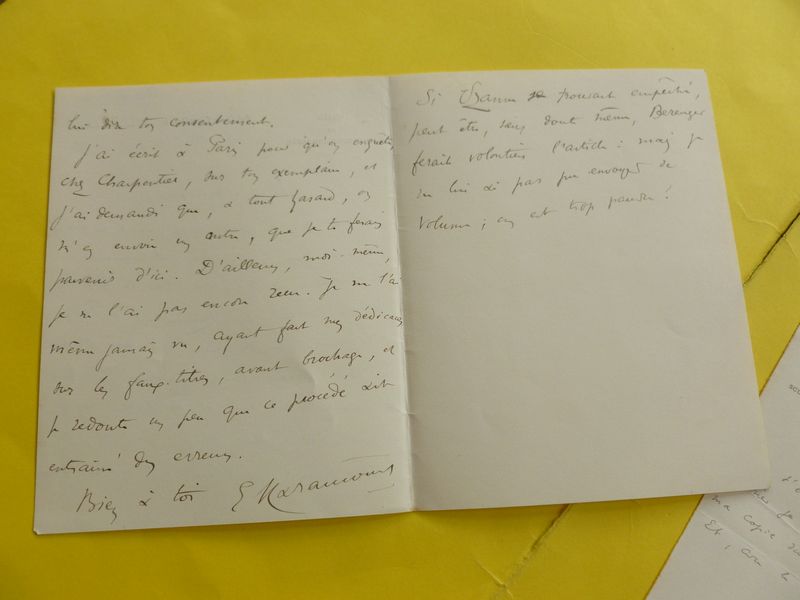 lui dire ton consentement.
J'ai écrit à Paris pour qu'on enquête,
chez Charpentier, sur ton exemplaire, et
j'ai demandé que, à tout hasard, on
m'en envoie un autre, que je te ferais
parvenir d'ici. D'ailleurs, moi-même,
je ne l'ai pas encore reçu. Je ne l'ai
même jamais vu, ayant fait mes dédicaces
sur les faux-titres, avant brochage, et
je redoute un peu que ce procédé ait
entraîné des erreurs.
Bien à toi
Si se trouvait empêché,
peut être, sans doute même, Berenger
ferait volontiers l'article : mais je
ne lui ai pas pu envoyer de
volume ; on est trop pauvre !
ma copie
Et,